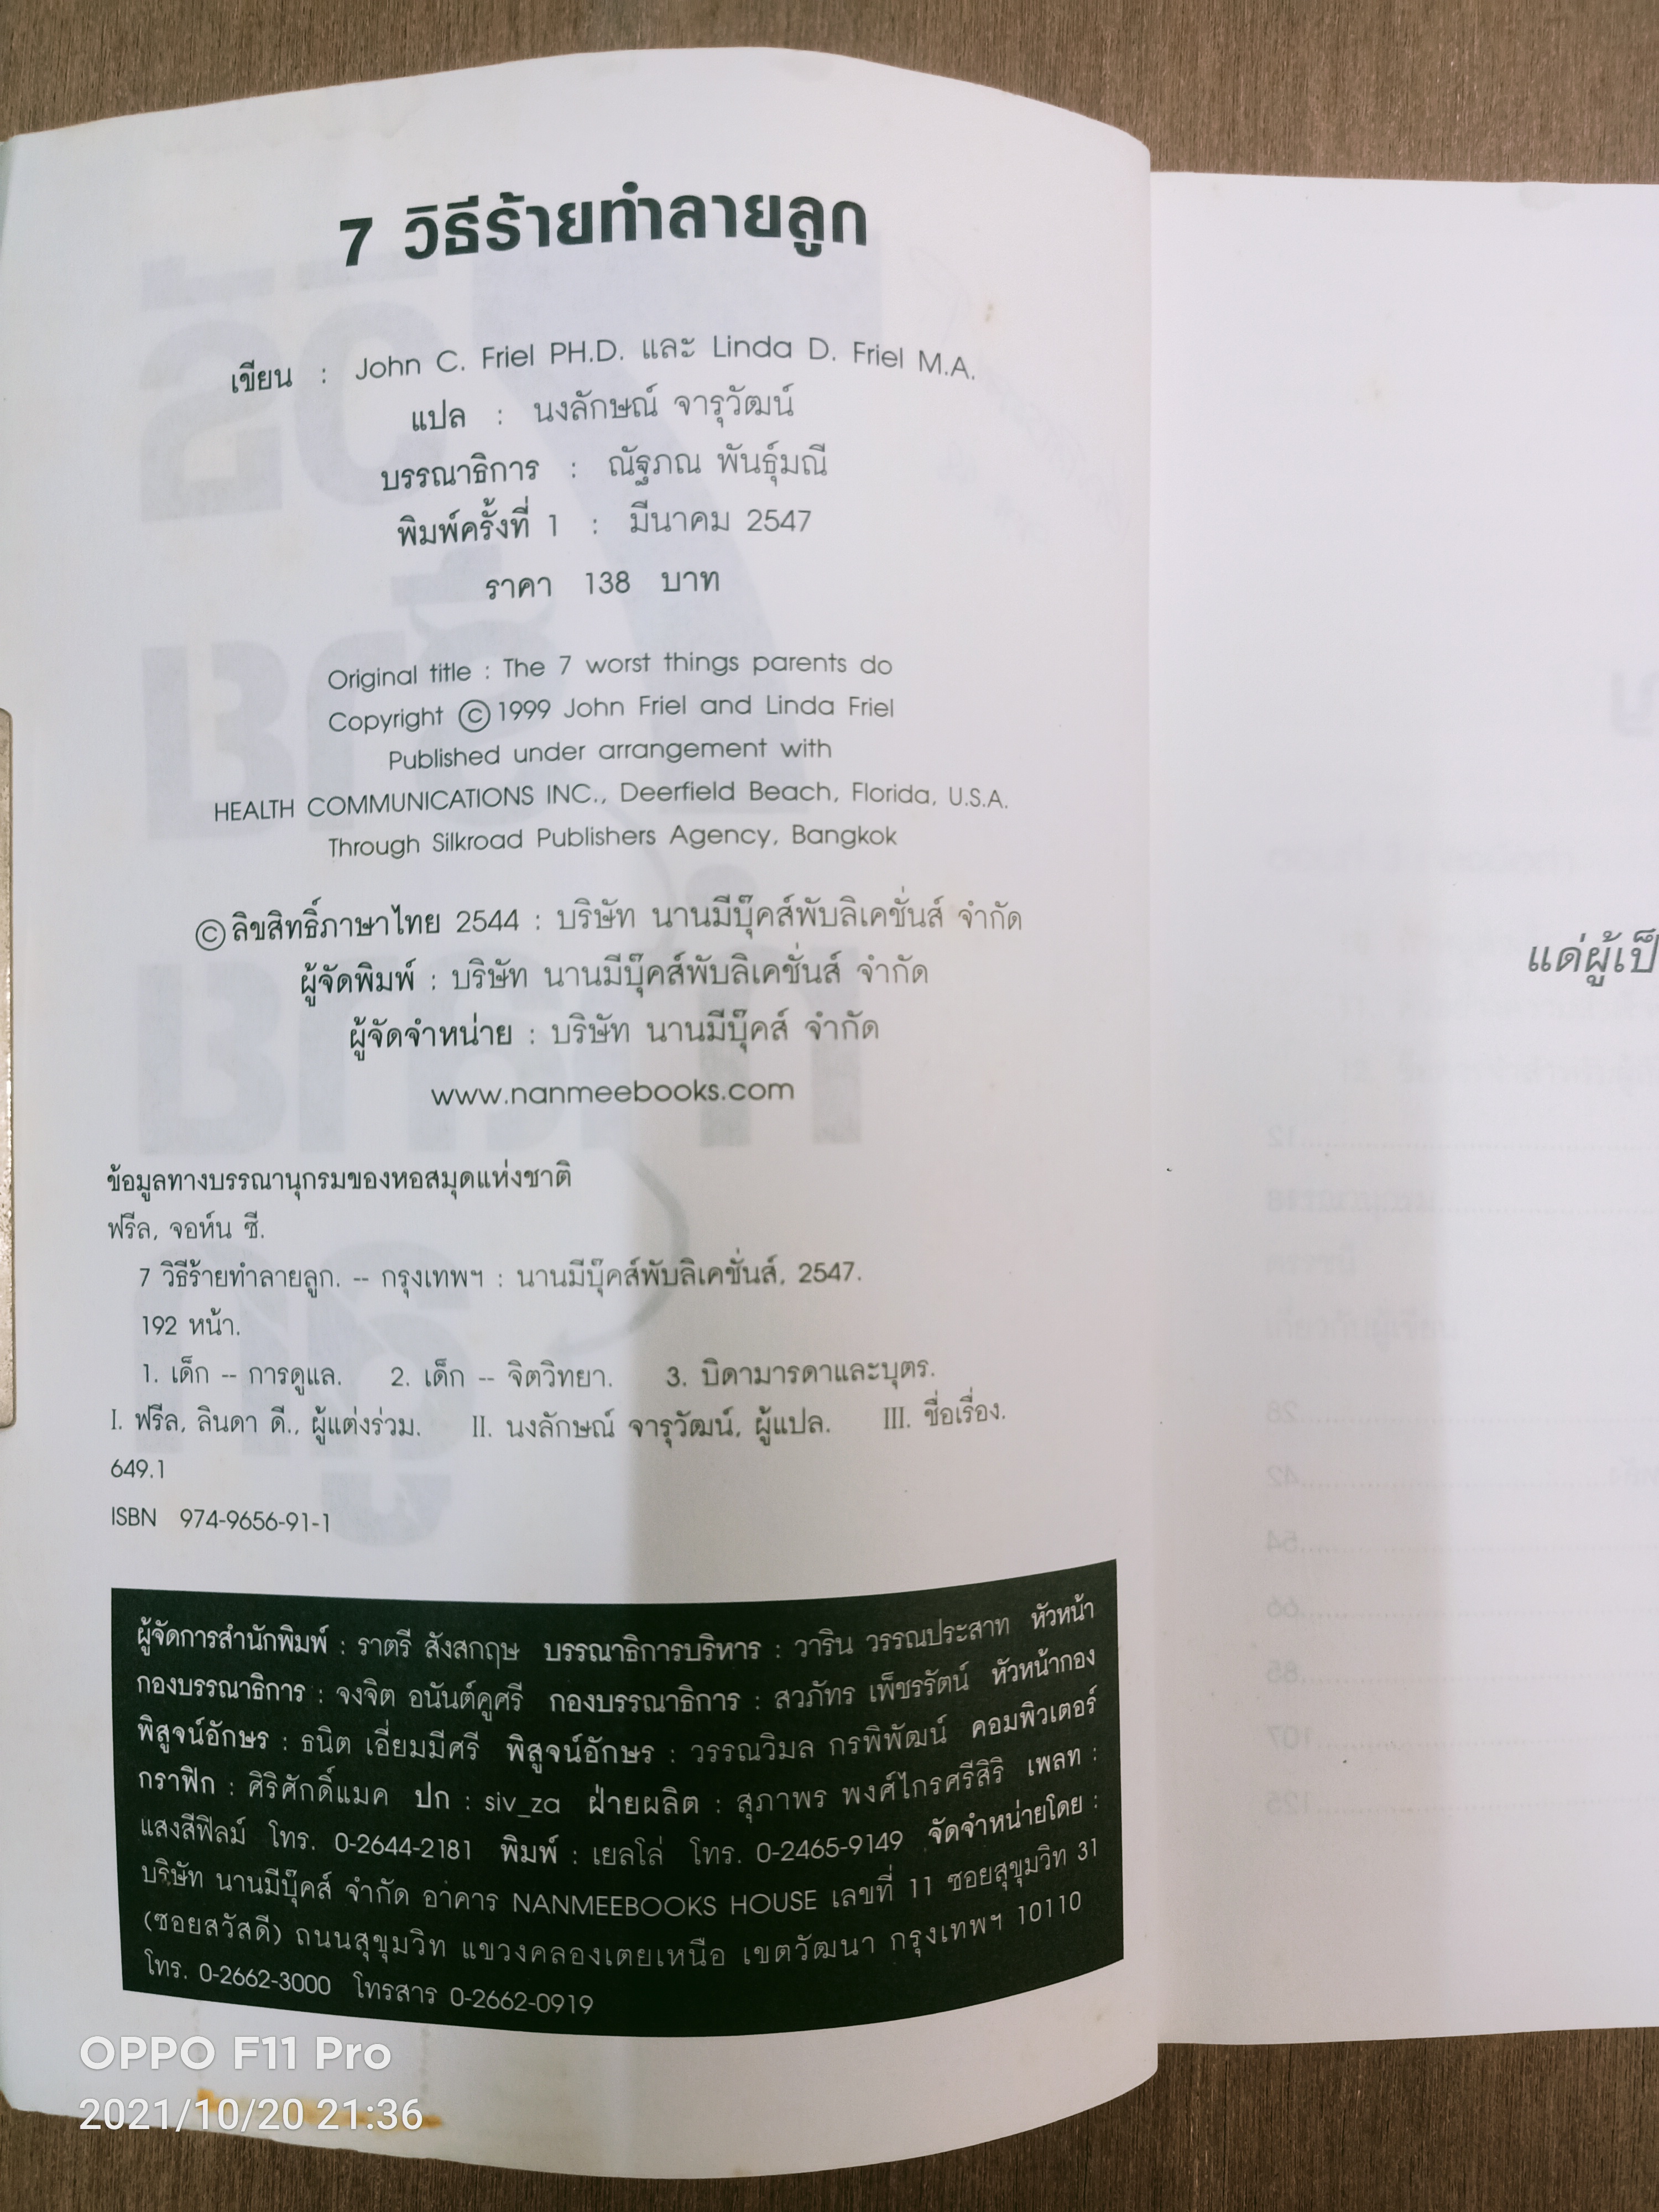 7 วิธีร้ายทำลายลูก
เขียน : John C. Friel PH.D. และ Linda D. Friel M.A.
แปล : นงลักษณ์ จารุวัฒน์
บรรณาธิการ : ณัฐภณ พันธุ์มณี
พิมพ์ครั้งที่ 1 : มีนาคม 2547
ราคา 138 บาท
Original title : The 7 worst things parents do
Copyright © 1999 John Friel and Linda Friel
Published under arrangement with
HEALTH COMMUNICATIONS INC., Deerfield Beach, Florida, U.S.A.
Through Silkroad Publishers Agency, Bangkok
© ลิขสิทธิ์ภาษาไทย 2544 : บริษัท นานมีบุ๊คส์พับลิเคชั่นส์ จำกัด
ผู้จัดพิมพ์ : บริษัท นานมีบุ๊คส์พับลิเคชั่นส์ จำกัด
ผู้จัดจำหน่าย : บริษัท นานมีบุ๊คส์ จำกัด
www.nanmeebooks.com
ข้อมูลทางบรรณานุกรมของหอสมุดแห่งชาติ
ฟรีล, จอห์น ซี.
7 วิธีร้ายทำลายลูก. -- กรุงเทพฯ : นานมีบุ๊คส์พับลิเคชั่นส์, 2547.
192 หน้า.
1. เด็ก -- การดูแล. 2. เด็ก -- จิตวิทยา. 3. บิดามารดาและบุตร.
I. ฟรีล, ลินดา ดี., ผู้แต่งร่วม. II. นงลักษณ์ จารุวัฒน์, ผู้แปล. III. ชื่อเรื่อง.
649.1
ISBN 974-9656-91-1
ผู้จัดการสำนักพิมพ์ : ราตรี สังสกฤษ บรรณาธิการบริหาร : วาริน วรรณประสาท หัวหน้า
กองบรรณาธิการ : จงจิต อนันต์คูศรี กองบรรณาธิการ : สวภัทร เพ็ชรรัตน์ หัวหน้ากอง
พิสูจน์อักษร : ธนิต เอี่ยมมีศรี พิสูจน์อักษร : วรรณวิมล กรพิพัฒน์ คอมพิวเตอร์
กราฟิก : ศิริศักดิ์แมค ปก : siv_za ฝ่ายผลิต : สุภาพร พงศ์ไกรศรีสิริ เพลท :
แสงสีฟิลม์ โทร. 0-2644-2181 พิมพ์ : เยลโล่ โทร. 0-2465-9149 จัดจำหน่ายโดย :
บริษัท นานมีบุ๊คส์ จำกัด อาคาร NANMEEBOOKS HOUSE เลขที่ 11 ซอยสุขุมวิท 31
(ซอยสวัสดี) ถนนสุขุมวิท แขวงคลองเตยเหนือ เขตวัฒนา กรุงเทพฯ 10110
โทร. 0-2662-3000 โทรสาร 0-2662-0919
แด่ผู้เป็
OPPO F11 Pro
2021/10/20 21:36